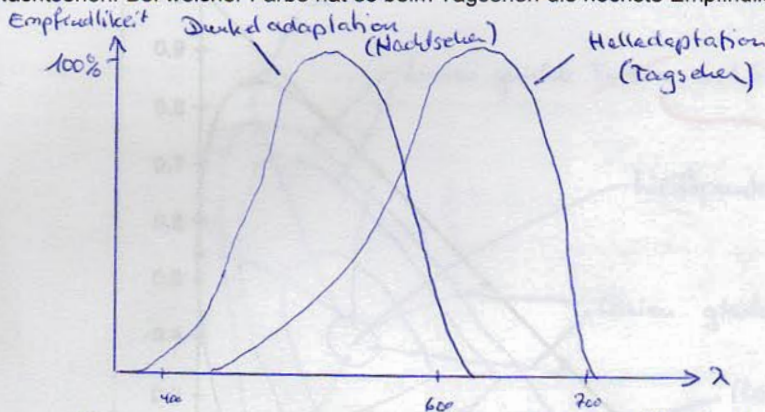 Nachtsehen. Bei welcher Farbe hat es beim Tagsehen die höchste Empfindli
Empfindlikeit
Dunkeladaptation
(Nachtsehen)
Helladaptation
(Tagsehen)
100%
400
600
700
λ